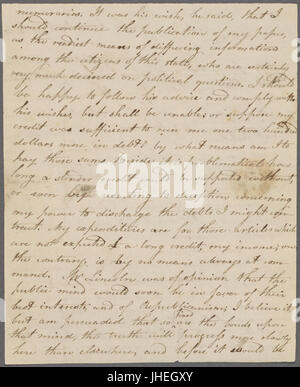 memoraries. It was his wish, he said, that I
should continue the publication of my paper,
as the readiest means of diffusing information
among the citizens of this state, who are certainly
very much deceived on political questions. I should
be happy to follow his advice and comply with
his wishes, but shall be unable: or suppose my
credit was sufficient to run me one two hundred
dollars more in debt? by what means am I to
pay those sums besides it is problematical how
long a slender credit could be supported without,
or soon
my power to discharge the debts I might con-
tract. My expenditures are for those articles which
are not expected to a long credit; my income, on
the contrary, is by no means always at com-
mand. Mr. Lincoln was of opinion that the
public mind would soon be in favor of their
best interests, and of Republicanism; I believe it
but am persuaded that so are the bonds upon
that mind, this truth will progress more slowly
here than elsewhere, and before it would be
alamy stock photo
JHEGXY